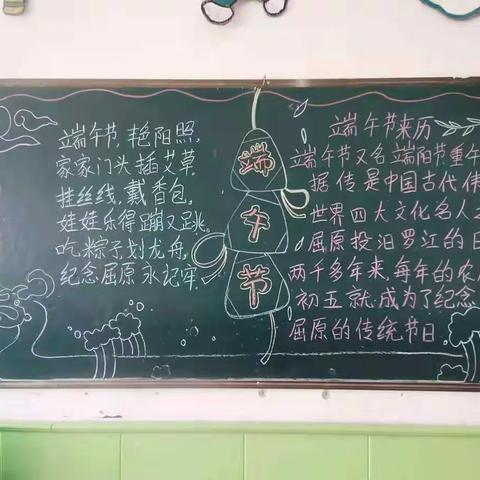 端午节,艳阳照,
家家门头插艾草,
挂丝线,戴香包,
娃娃乐得蹦又跳。
吃粽子划龙舟,
纪念屈原永记牢。
端
午
节
端午节来历
端午节又名端阳节重午
据传是中国古代
世界四大文化名人之
屈原投汨罗江的日
两千多年来,每年的农
初五就成为了纪念
屈原的传统节日